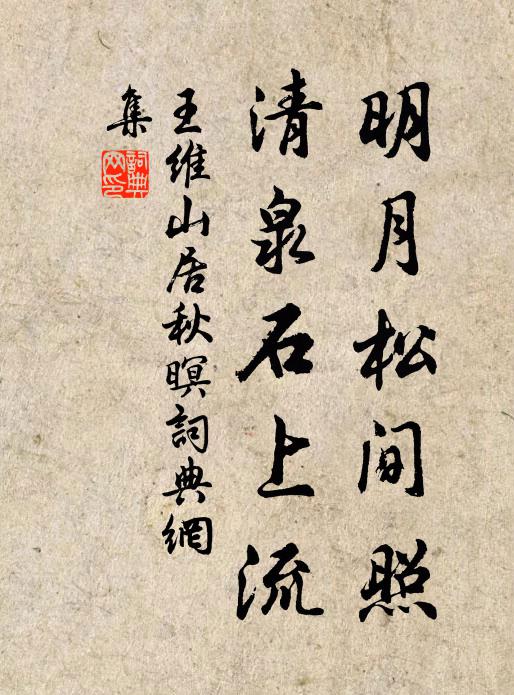 明月松间照
清泉石上流
王維山居秋暝詞典網
集
詞典
网印